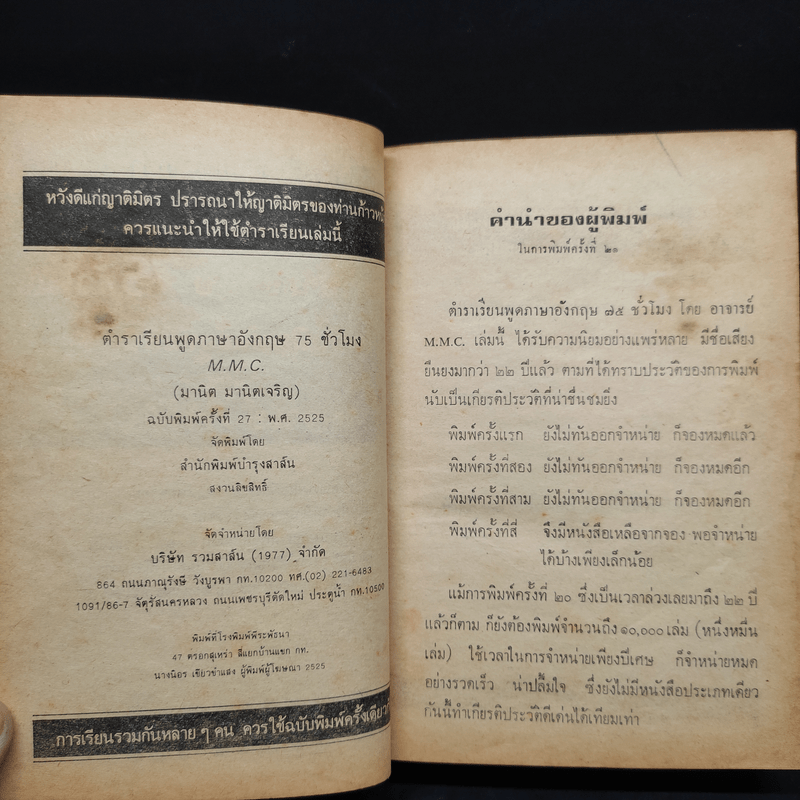 หวังดีแก่ญาติมิตร ปรารถนาให้ญาติมิตรของท่านก้าวหน้า
ควรแนะนำให้ใช้ตำราเรียนเล่มนี้
ตำราเรียนพูดภาษาอังกฤษ 75 ชั่วโมง
M.M.C.
(มานิต มานิตเจริญ)
ฉบับพิมพ์ครั้งที่ 27 : พ.ศ. 2525
จัดพิมพ์โดย
สำนักพิมพ์บำรุงสาส์น
สงวนลิขสิทธิ์
จัดจำหน่ายโดย
บริษัท รวมสาส์น (1977) จำกัด
864 ถนนภาณุรังษี วังบูรพา กท.10200 ทศ.(02) 221-6483
1091/86-7 จัตุรัสนครหลวง ถนนเพชรบุรีตัดใหม่ ประตูน้ำ กท.10500
พิมพ์ที่โรงพิมพ์พีระพัธนา
47 ตรอกสุเหร่า สี่แยกบ้านแขก กท.
นางนิอร เขียวขำแสง ผู้พิมพ์ผู้โฆษณา 2525
การเรียนรวมกันหลาย ๆ คน ควรใช้ฉบับพิมพ์ครั้งเดียว
คำนำของผู้พิมพ์
ในการพิมพ์ครั้งที่ ๒๑
ตำราเรียนพูดภาษาอังกฤษ ๗๕ ชั่วโมง โดย อาจารย์
M.M.C. เล่มนี้ ได้รับความนิยมอย่างแพร่หลาย มีชื่อเสียง
ยืนยงมากว่า ๒๒ ปีแล้ว ตามที่ได้ทราบประวัติของการพิมพ์
นับเป็นเกียรติประวัติที่น่าชื่นชมยิ่ง
พิมพ์ครั้งแรก ยังไม่ทันออกจำหน่าย ก็จองหมดแล้ว
พิมพ์ครั้งที่สอง ยังไม่ทันออกจำหน่าย ก็จองหมดอีก
พิมพ์ครั้งที่สาม ยังไม่ทันออกจำหน่าย ก็จองหมดอีก
พิมพ์ครั้งที่สี่ จึงมีหนังสือเหลือจากจอง พอจำหน่าย
ได้บ้างเพียงเล็กน้อย
แม้การพิมพ์ครั้งที่ ๒๐ ซึ่งเป็นเวลาล่วงเลยมาถึง ๒๒ ปี
แล้วก็ตาม ก็ยังต้องพิมพ์จำนวนถึง ๑๐,๐๐๐ เล่ม (หนึ่งหมื่น
เล่ม) ใช้เวลาในการจำหน่ายเพียงปีเศษ ก็จำหน่ายหมด
อย่างรวดเร็ว น่าปลื้มใจ ซึ่งยังไม่มีหนังสือประเภทเดียว
กันนี้ทำเกียรติประวัติดีเด่นได้เทียมเท่า